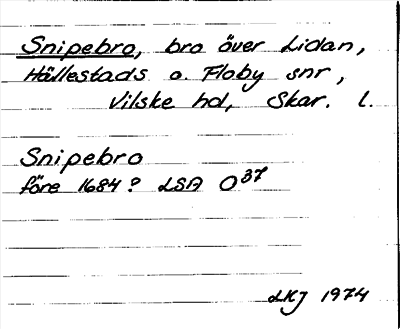 Snipebro, bro över Lidan,
Hällestads o. Floby snr,
Vilske hd, Skar. l.
Snipebro
före 1684? LSA O37
LKJ 1974